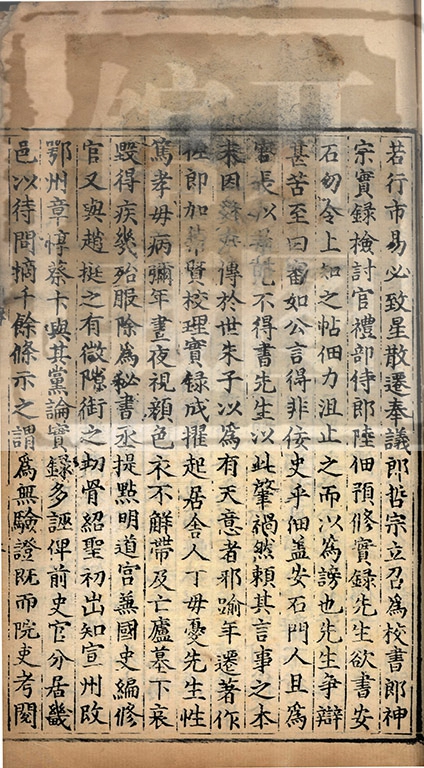 若行市易必致星散遷奉議郎哲宗立召爲校書郎神
宗實錄檢討官禮部侍郎陸佃預修實錄先生欲書安
石勿令上知之帖佃力沮止之而以爲謗也先生爭辯
甚苦至曰審如公言得非佞史乎佃蓋安石門人且爲
官長以不得書先生以此肇禍然賴其言事之本
末因傳於世朱子以爲有天意者邪踰年遷著作
佐郎加集賢校理實錄成擢起居舍人丁母憂先生性
篤孝母病彌年晝夜視顏色衣不解帶及亡廬墓下哀
毀得疾幾殆服除爲秘書丞提點明道宮兼國史編修
官又與趙挺之有微隙銜之切骨紹聖初出知宣州改
鄂州章惇蔡卞與其黨論實錄多誣俾前史官分居畿
邑以待問摘千餘條示之謂爲無驗證旣而院吏考閱